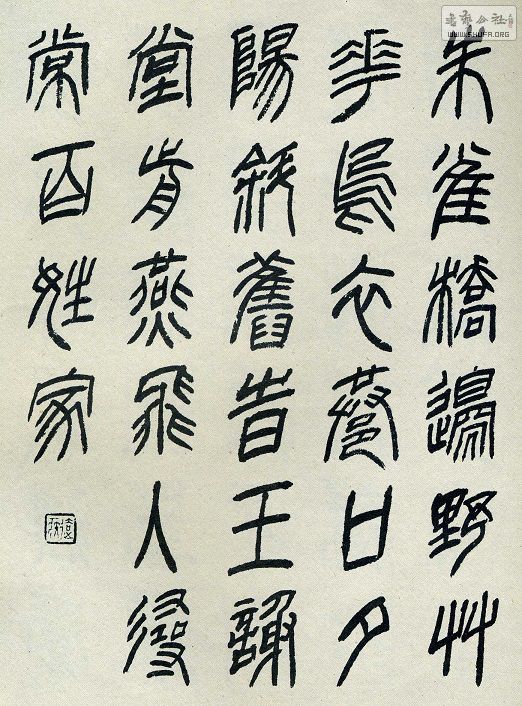 朱雀橋邊野艸
華烏衣巷口夕
陽斜舊旹王謝
堂歬燕飛入尋
常百姓家
书法公社
WWW.SHUFA.ORG